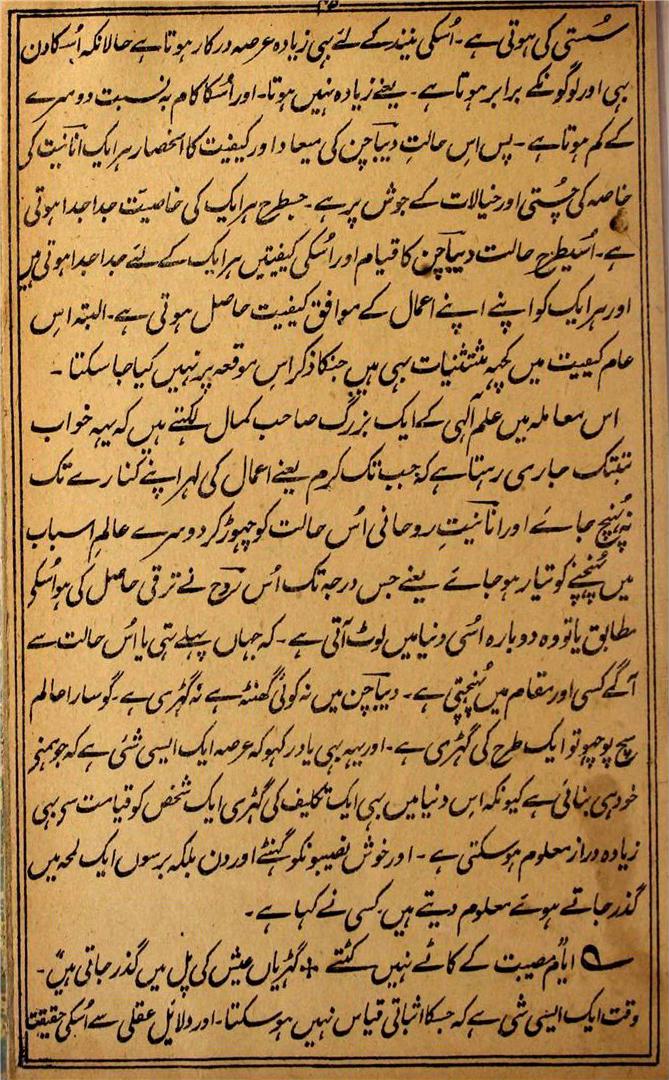 ۴۵
سُستی کی ہوتی ہے۔ اُسکی نیند کے لئے بہی زیادہ عرصہ درکار ہوتا ہے حالانکہ اُسکا دن
بہی اور لوگونکے برابر ہوتا ہے۔ یعنے زیادہ نہیں ہوتا۔ اور اُسکا کام بہ نسبت دوسرے
کے کم ہوتا ہے۔ پس اس حالتِ دیباچن کی میعاد اور کیفیت کا انحصار ہر ایک انانیت کی
خاصہ کی چُستی اور خیالات کے جوش پر ہے۔ جسطرح ہر ایک کی خاصیت جدا جدا ہوتی
ہے۔ اُسیطرح حالت دیباچن کا قیام اور اُسکی کیفیتیں ہر ایک کے لئے جدا جدا ہوتی ہیں
اور ہر ایک کو اپنے اپنے اعمال کے موافق کیفیت حاصل ہوتی ہے۔ البتہ اس
عام کیفیت میں کچہہ مستثنیات بہی ہیں جنکا ذکر اس موقعہ پر نہیں کیا جا سکتا ۔
اس معاملہ میں علم الٰہی کے ایک بزرگ صاحب کمال لکہتے ہیں کہ یہہ خواب
تبتک جاری رہتا ہے کہ جب تک کرم یعنے اعمال کی لہر اپنے کنارے تک
نہ پہنچ جائے اور انانیتِ روحانی اُس حالت کو چہوڑ کر دوسرے عالمِ اسباب
میں پہنچنے کو تیار ہو جائے یعنے جس درجہ تک اُس روح نے ترقی حاصل کی ہو اُسکی
مطابق یا تو وہ دوبارہ اُسی دنیا میں لوٹ آتی ہے۔ کہ جہاں پہلے تہی یا اُس حالت سے
آگے کسی اور مقام میں پہنچتی ہے۔ دیباچن میں نہ کوئی گھنٹہ ہے نہ گہڑی ہے۔ گو سارا عالم
سچ پوچہو تو ایک طرح کی گہڑی ہے۔ اور یہہ بہی یاد رکہو کہ عرصہ ایک ایسی شئی ہے کہ جو ہمنے
خود ہی بنائی ہے کیونکہ اس دنیا میں بہی ایک تکلیف کی گہڑی ایک شخص کو قیامت سے بہی
زیادہ دراز معلوم ہو سکتی ہے۔ اور خوش نصیبونکو گہنٹے اور دن بلکہ برسوں ایک لمحہ میں
گذر جاتے ہوئے معلوم دیتے ہیں کسی نے کہا ہے۔
؎ ایام مصیبت کے کاٹے نہیں کٹتے + گہڑیاں عیش کی پل میں گذر جاتی ہیں۔
وقت ایک ایسی شی ہے کہ جسکا اثباتی قیاس نہیں ہو سکتا۔ اور دلائل عقلی سے اُسکی حقیقت